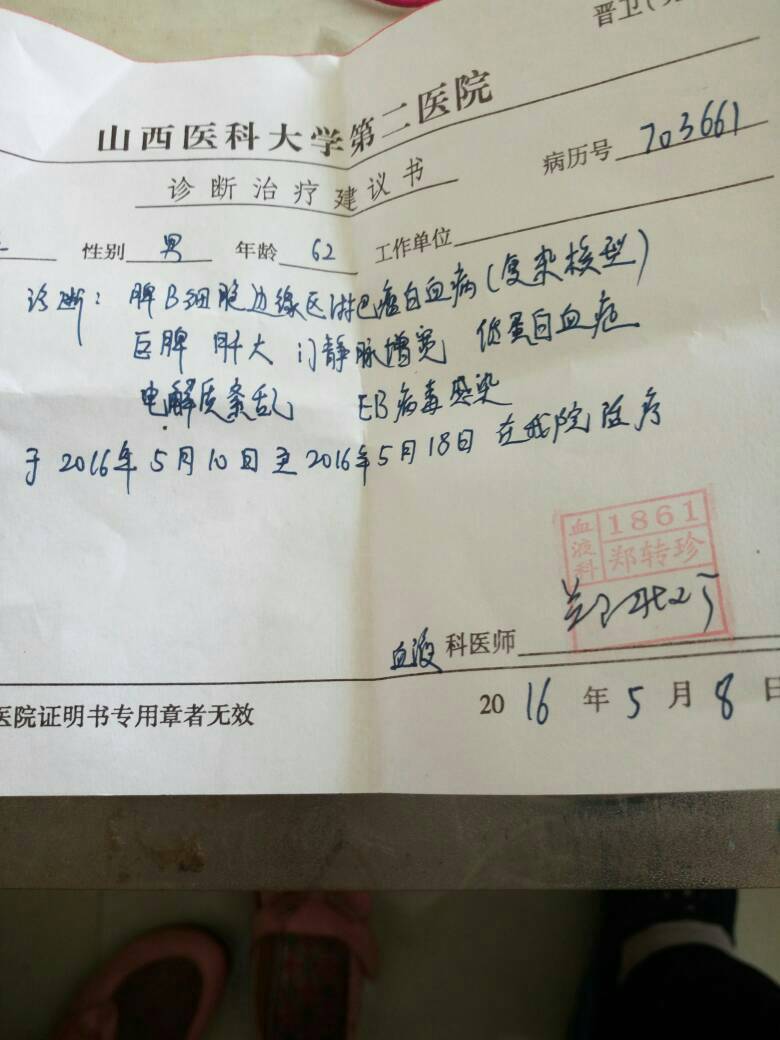 山西医科大学第二医院
诊断治疗建议书
病历号 703661
性别 男 年龄 62 工作单位
诊断: 脾B细胞边缘区淋巴瘤白血病(复杂核型)
巨脾 肝大 门静脉增宽 低蛋白血症
电解质紊乱 EB病毒感染
于2016年5月10日至2016年5月18日在我院医疗
血液科 1861
郑转珍
血液科医师
2016年5月8日
医院证明书专用章者无效